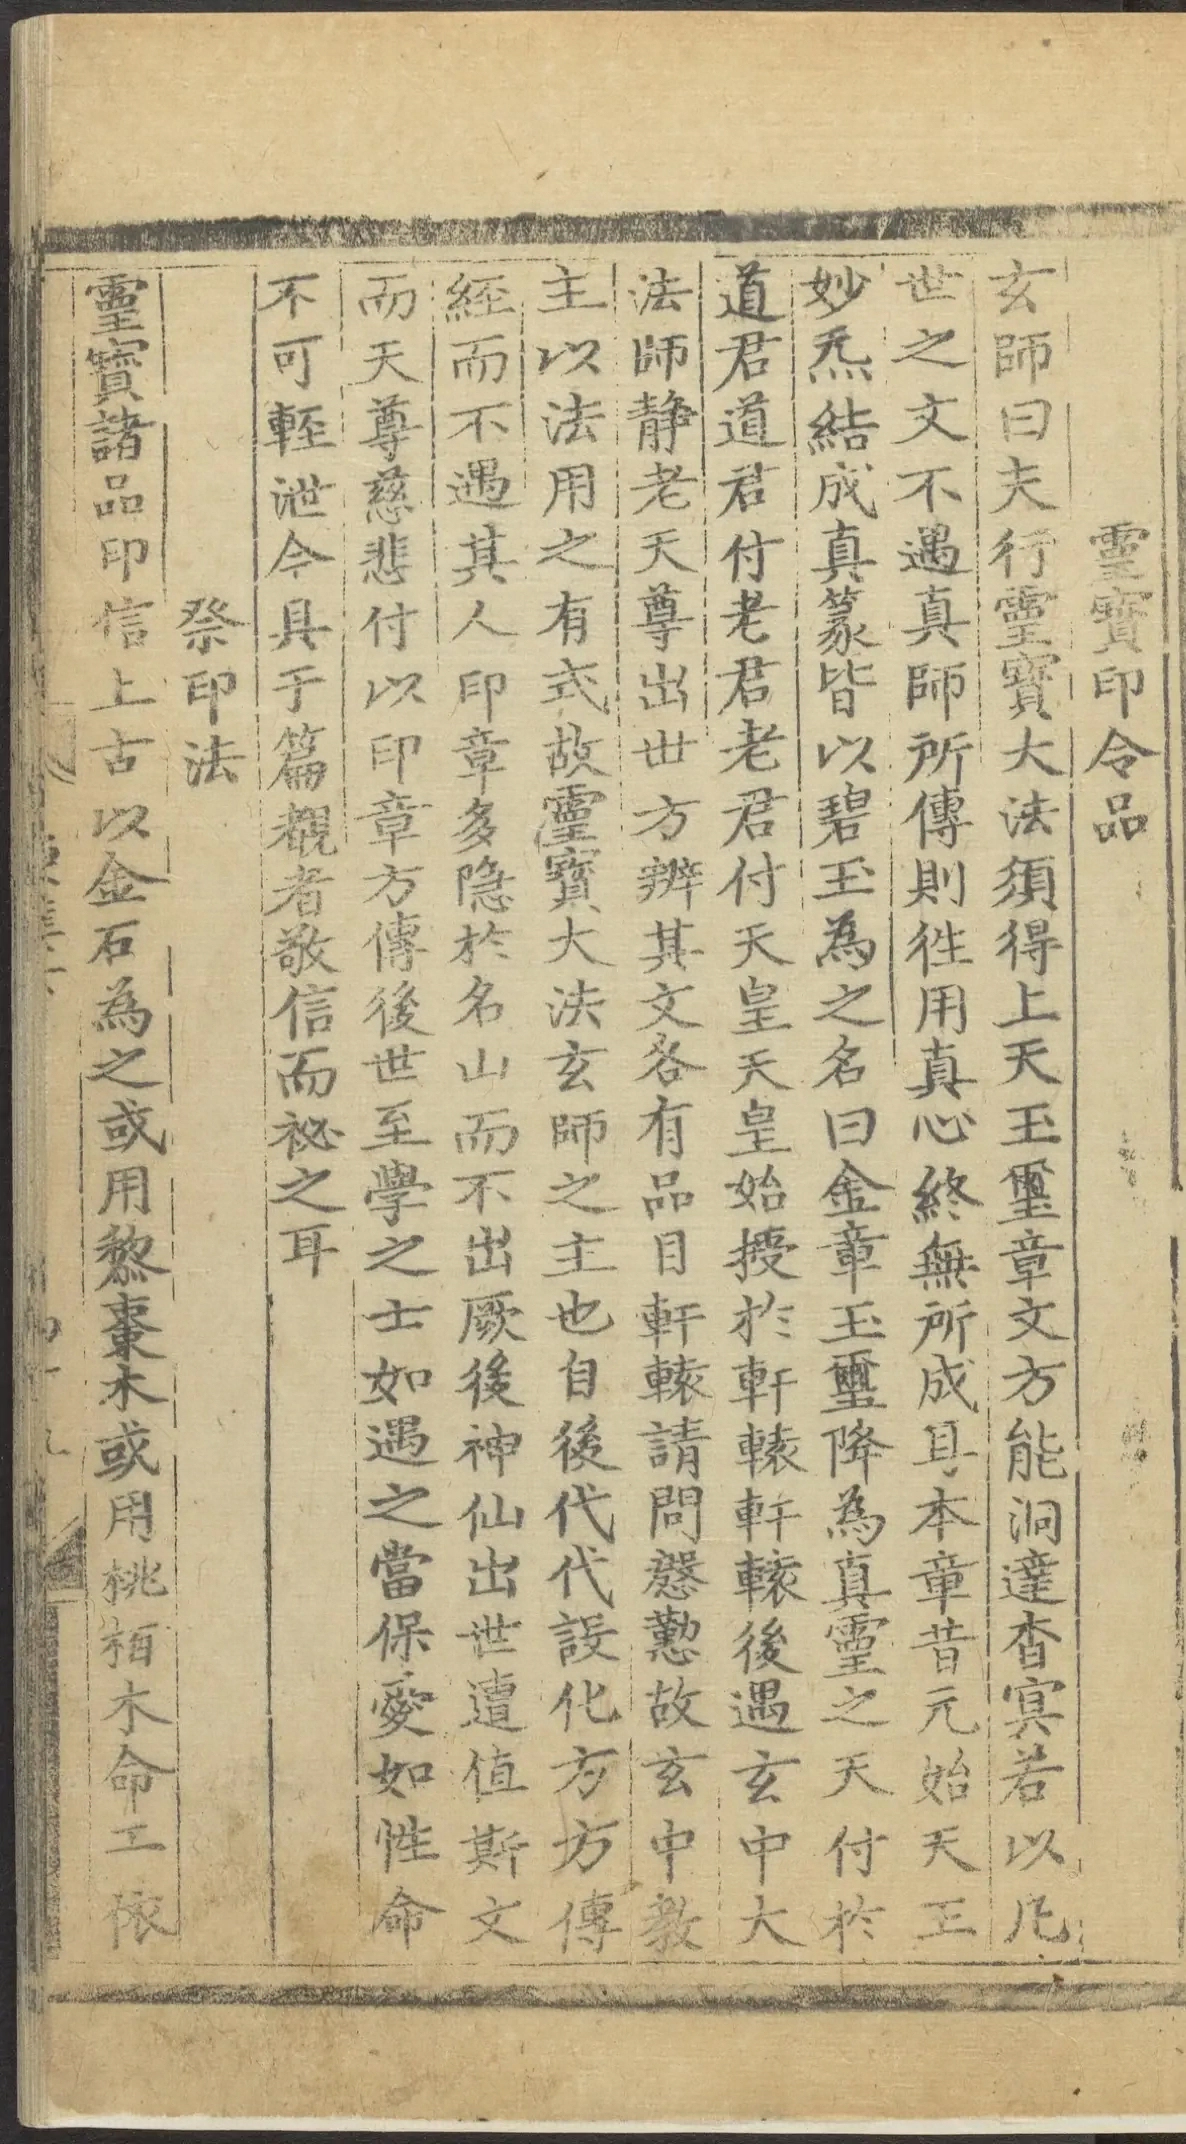 靈寶印令品
玄師曰夫行靈寶大法須得上天玉璽章文方能洞達杳冥若以凡
世之文不遇真師所傳則徃用真心終無所成耳本章昔元始天王
妙炁結成真篆皆以碧玉為之名曰金章玉璽降為真靈之天付於
道君道君付老君老君付天皇天皇始授於軒轅軒轅後遇玄中大
法師静老天尊出世方辨其文各有品目軒轅請問慇懃故玄中教
主以法用之有式故靈寶大法玄師之主也自後代代設化方方傳
經而不遇其人印章多隐於名山而不出厥後神仙出世遭值斯文
而天尊慈悲付以印章方傳後世至學之士如遇之當保愛如性命
不可輊泄今具于篇觀者敬信而祕之耳
祭印法
靈寶諸品印信上古以金石為之或用黎棗木或用桃栢木命工依